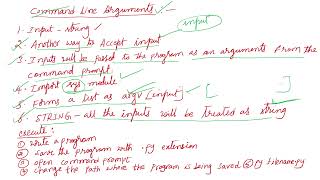 Command Line Arguments
1. Input - string
input
2. Another way to Accept input
3. Inputs will be passed to the program as an arguments from the
command prompt
4. Import sys module
5. Forms a list as argv [input]
6. STRING - all the inputs will be treated as string
execute:
① Write a program
② Save the program with .py extension
③ open command prompt
④ Change the path where the program is being saved ⑤ py filename.py